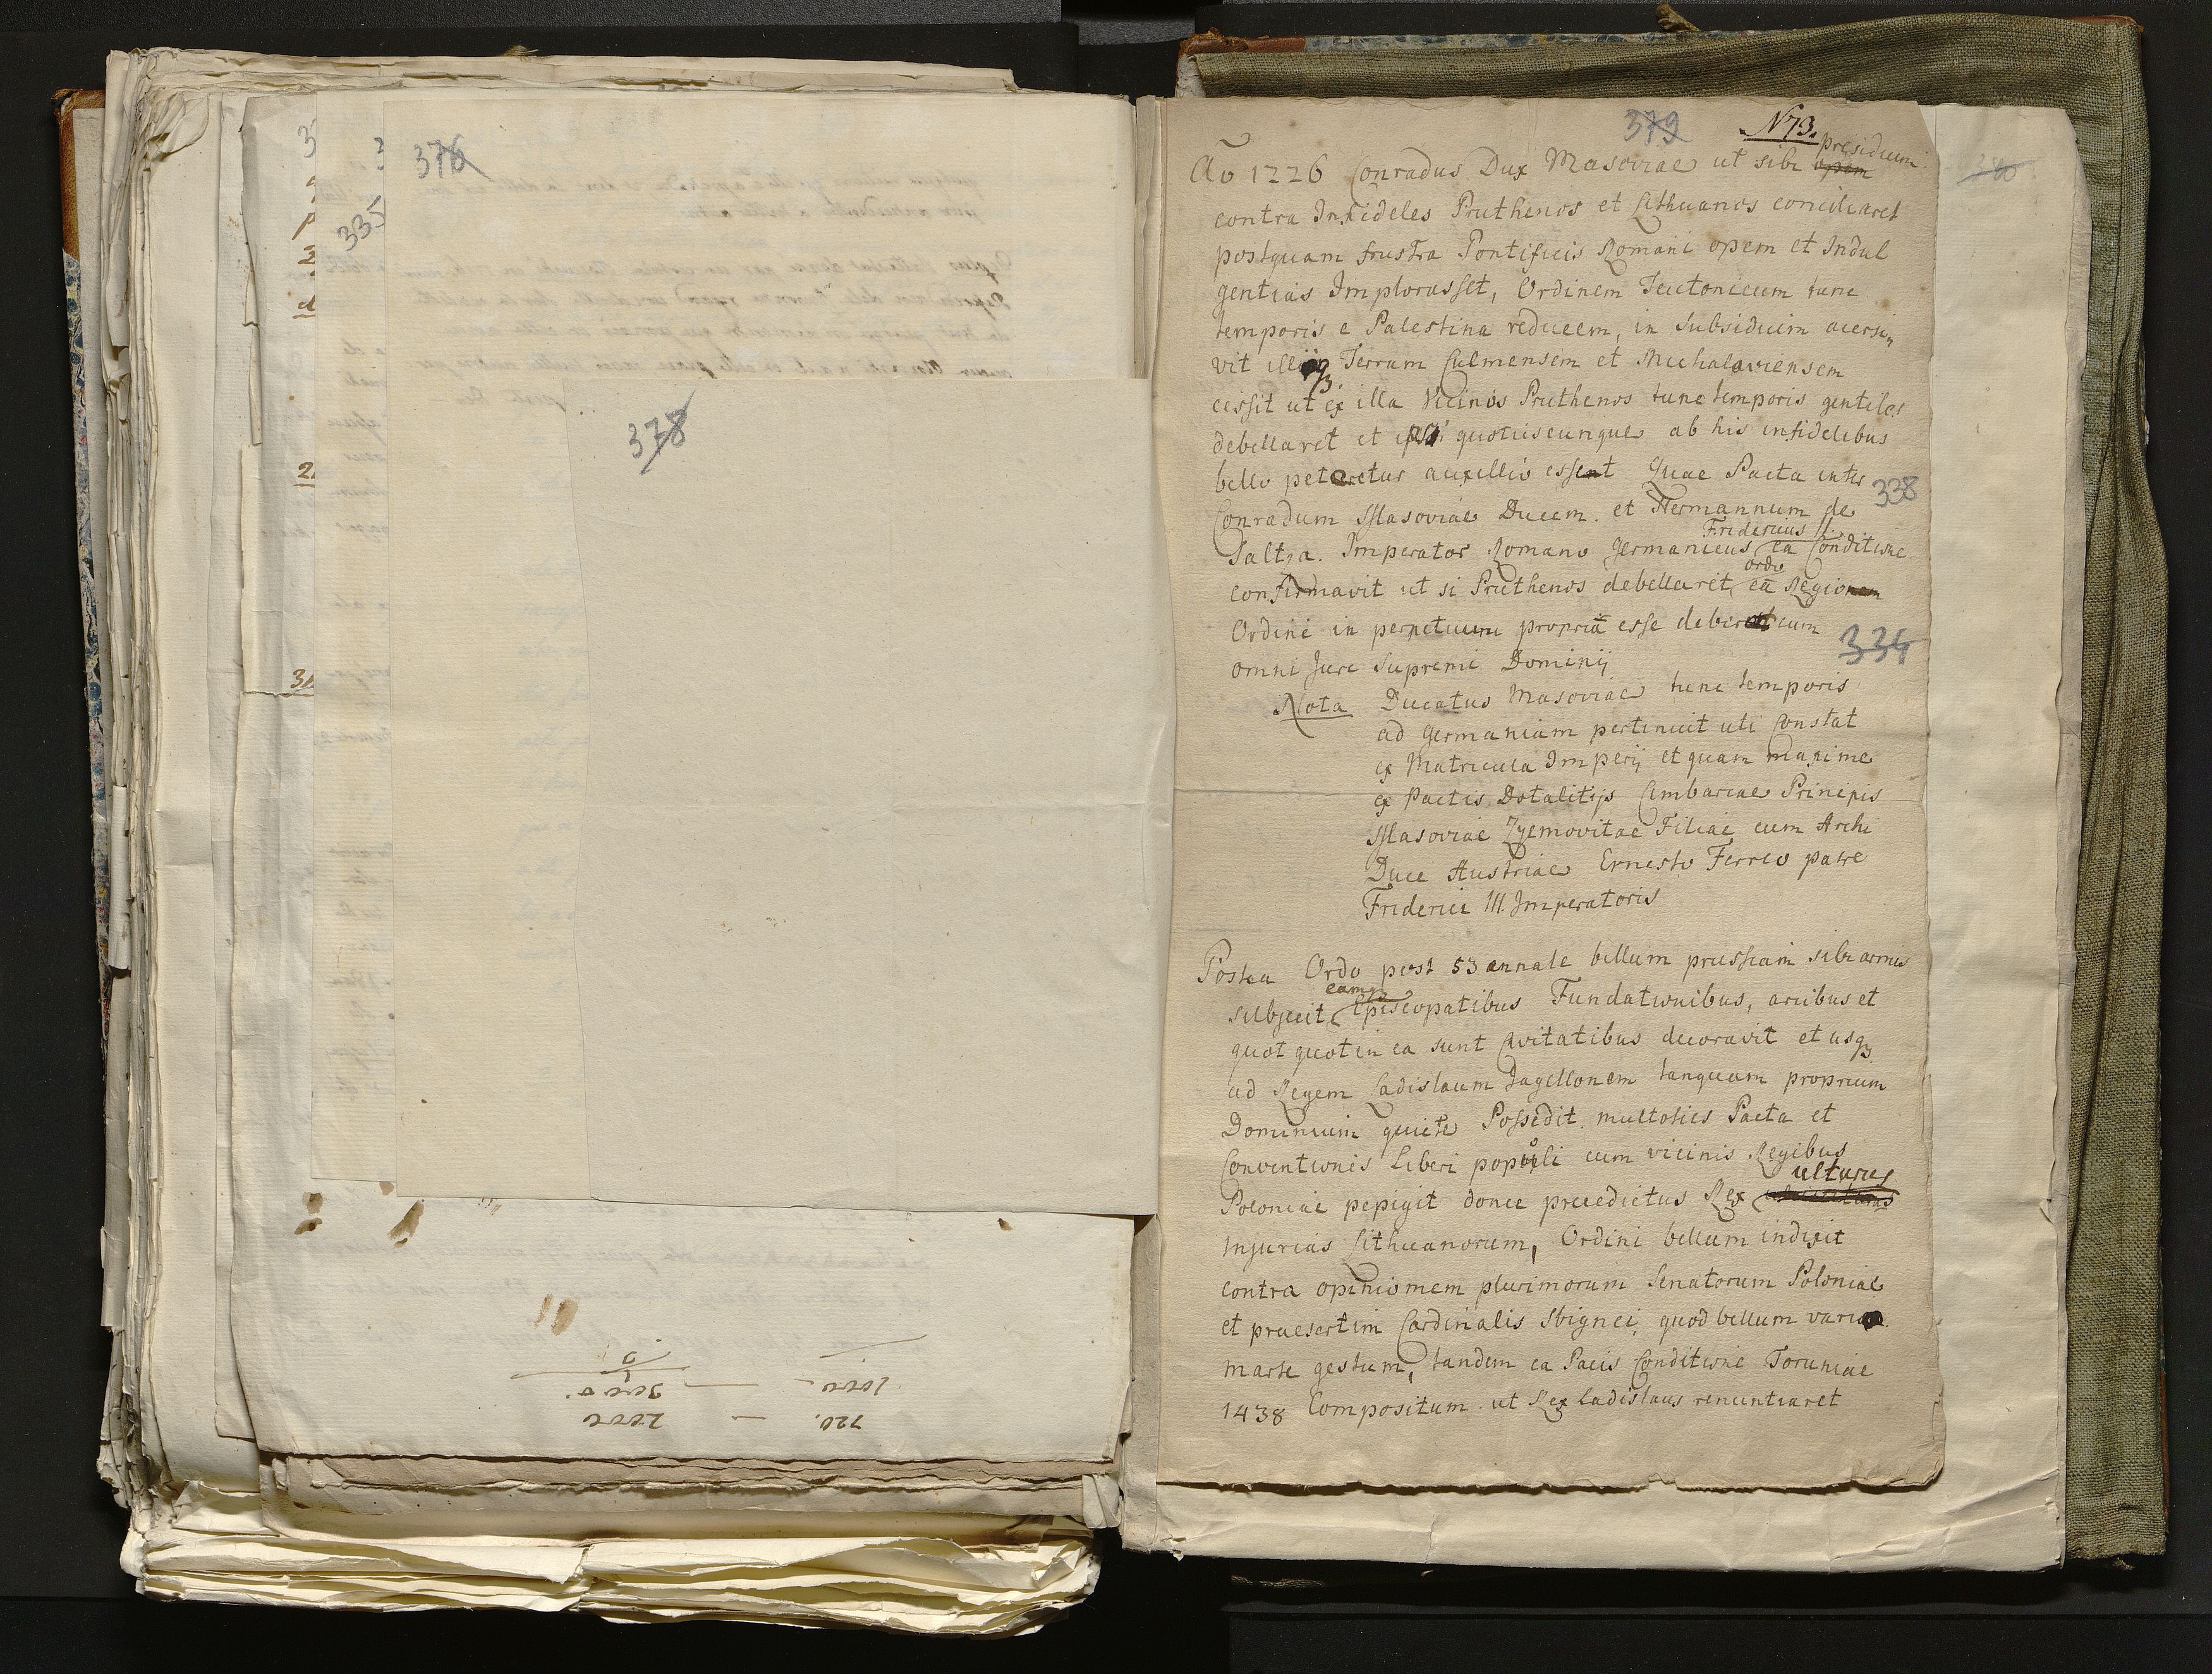 376
335
378
379
N 73.
380
presidium
Aō 1226 Conradus Dux Masoviae ut sibi opem
contra Infideles Pruthenos et Lithuanos conciliaret
postquam frustra Pontificis Romani opem et Indul
gentias Implorasset, Ordinem Teutonicum tunc
temporis e Palestina reducem, in Subsidium acersi„
vit illiq3 Terram Culmensem et Michalaviensem
cessit ut ex illa Vicinos Pruthenos tunc temporis gentiles
debellaret et ipsi quotiescunque ab his infidelibus
bello peteretur auxillio essent Quae Pacta inter
338
Conradum Masoviae Ducem. et Hermannum de
Fridericus II.
Saltza. Imperator Romano Germanicus ea Conditione
ordo
confirmavit ut si Pruthenos debellarit, ea Regionem
Ordini in perpetuum propriā esse deberet cum
334
omni Jure Supremi Dominij
Nota Ducatus Masoviae tunc temporis
ad Germaniam pertinuit uti Constat
ex Matricula Imperij et quam maxime
ex Pactis Dotalitijs Cimbarcae Principis
Masoviae Zyemovitae Filiae cum Archi
Duce Austriae Ernesto Ferreo patre
Friderici III. Imperatoris
Postea Ordo post 53 annale bellum prussiam sibi armis
eamq3
subjecit Episcopatibus Fundationibus, arcibus et
quot quot in ea sunt Civitatibus decoravit et usq3
ad Regem Ladislaum Jagellonem tanquam proprium
Dominium quiete Possedit. multoties Pacta et
Conventiones Liberi populi cum vicinis Regibus
ulturus
Poloniae pepigit donec praedictus Rex
Injurias Lithuanorum, Ordini bellum indixit
contra opinionem plurimorum Senatorum Poloniae
et praesertim Cardinalis Sbignei, quod bellum vario
marte gestum, tandem ea Pacis Conditione Toruniae
1438 Compositum. ut Rex Ladislaus renuntiaret
720. — 2000
1000 — 3000.